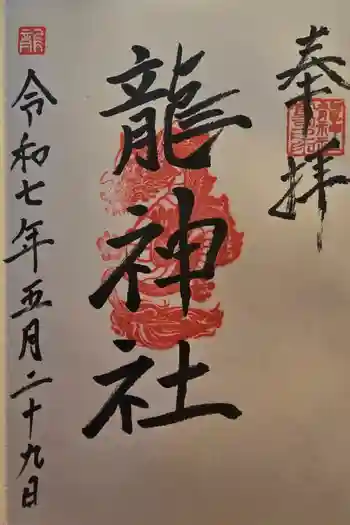 奉拝
龍神社
令和七年五月二十九日
龍